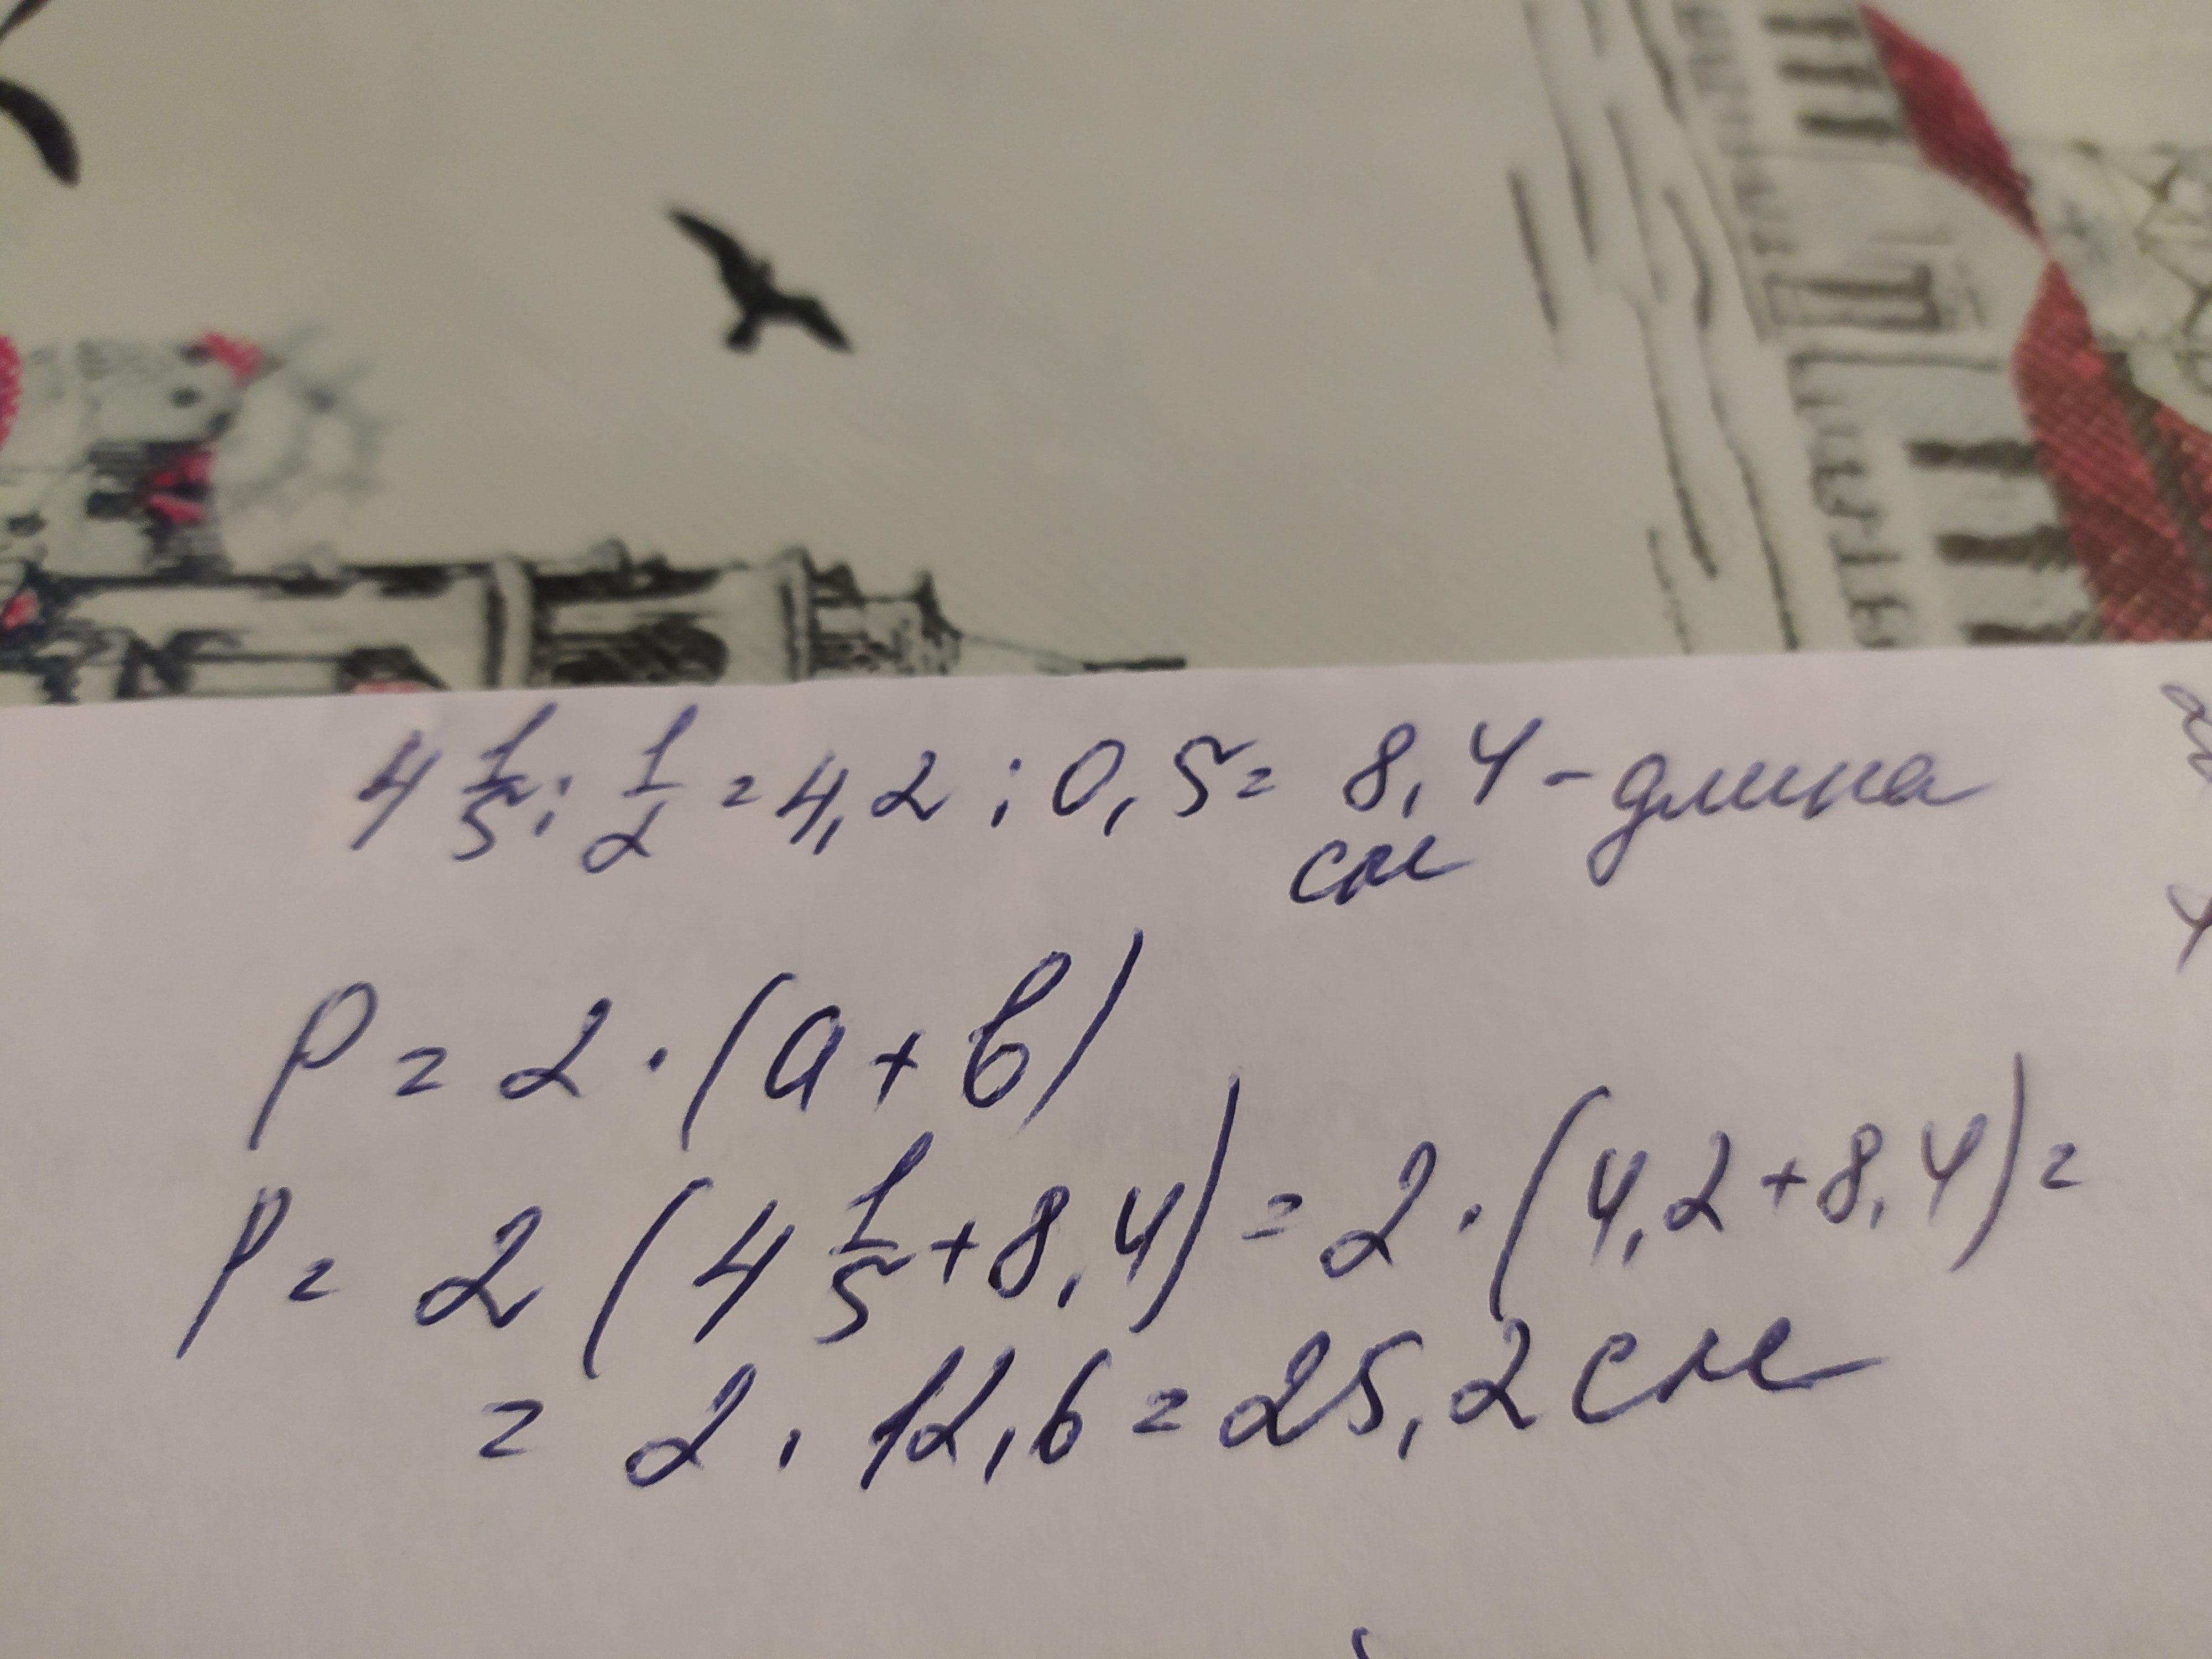 4 1/5 : 1/2 = 4,2 : 0,5 = 8,4 - длина
см
P = 2 · (a + b)
P = 2 (4 1/5 + 8,4) = 2 · (4,2 + 8,4) =
= 2 · 12,6 = 25,2 см